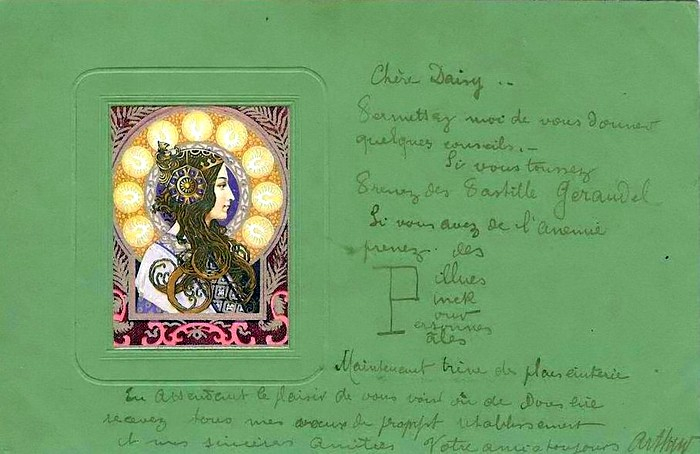 Chère Daisy ..
Permettez moi de vous donner
quelques conseils. –
Si vous toussez
Prenez des Pastille Geraudel
Si vous avez de l'anemie
prenez. des
Pillues
Pinck
Pour
Personnes
Pâles
Maintenant trève de plaisenterie
En attendant le plaisir de vous voir ou de vous lire
recevez tous mes voeux de prompt retablissement
et mes sincères amitiés Votre ami toujours Arthur